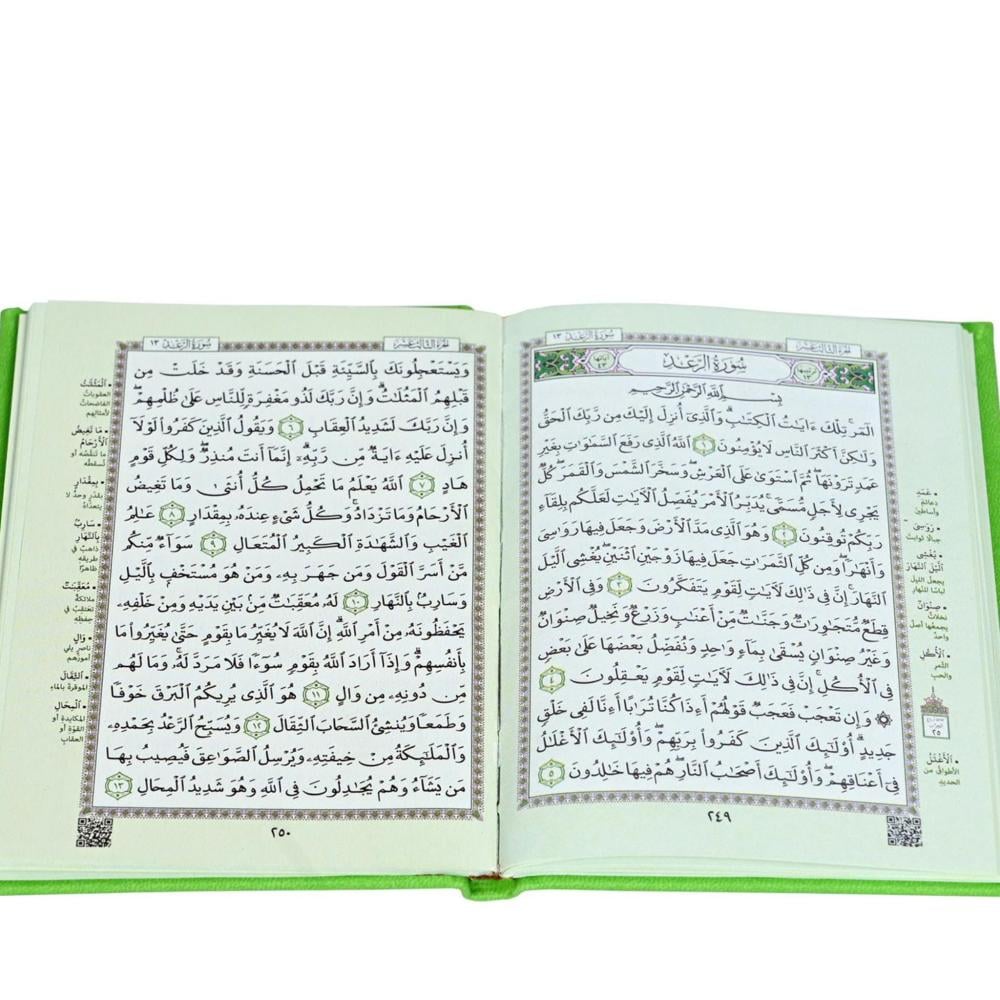 الجزء الثالث عشر
سورة الرعد ١٣
سُورَةُ الرَّعْدِ
بِسْمِ ٱللَّهِ ٱلرَّحْمَٰنِ ٱلرَّحِيمِ
الٓمٓر ۚ تِلْكَ ءَايَٰتُ ٱلْكِتَٰبِ ۗ وَٱلَّذِىٓ أُنزِلَ إِلَيْكَ مِن رَّبِّكَ ٱلْحَقُّ
وَلَٰكِنَّ أَكْثَرَ ٱلنَّاسِ لَا يُؤْمِنُونَ ١ ٱللَّهُ ٱلَّذِى رَفَعَ ٱلسَّمَٰوَٰتِ بِغَيْرِ
عَمَدٍ تَرَوْنَهَا ۖ ثُمَّ ٱسْتَوَىٰ عَلَى ٱلْعَرْشِ ۖ وَسَخَّرَ ٱلشَّمْسَ وَٱلْقَمَرَ ۖ كُلٌّ
يَجْرِى لِأَجَلٍ مُّسَمًّى ۚ يُدَبِّرُ ٱلْأَمْرَ يُفَصِّلُ ٱلْءَايَٰتِ لَعَلَّكُم بِلِقَآءِ
رَبِّكُمْ تُوقِنُونَ ٢ وَهُوَ ٱلَّذِى مَدَّ ٱلْأَرْضَ وَجَعَلَ فِيهَا رَوَٰسِىَ
وَأَنْهَٰرًا ۖ وَمِن كُلِّ ٱلثَّمَرَٰتِ جَعَلَ فِيهَا زَوْجَيْنِ ٱثْنَيْنِ ۖ يُغْشِى ٱلَّيْلَ
ٱلنَّهَارَ ۚ إِنَّ فِى ذَٰلِكَ لَءَايَٰتٍ لِّقَوْمٍ يَتَفَكَّرُونَ ٣ وَفِى ٱلْأَرْضِ
قِطَعٌ مُّتَجَٰوِرَٰتٌ وَجَنَّٰتٌ مِّنْ أَعْنَٰبٍ وَزَرْعٌ وَنَخِيلٌ صِنْوَانٌ
وَغَيْرُ صِنْوَانٍ يُسْقَىٰ بِمَآءٍ وَٰحِدٍ وَنُفَضِّلُ بَعْضَهَا عَلَىٰ بَعْضٍ
فِى ٱلْأُكُلِ ۚ إِنَّ فِى ذَٰلِكَ لَءَايَٰتٍ لِّقَوْمٍ يَعْقِلُونَ ٤
۞ وَإِن تَعْجَبْ فَعَجَبٌ قَوْلُهُمْ أَءِذَا كُنَّا تُرَٰبًا أَءِنَّا لَفِى خَلْقٍ
جَدِيدٍ ۗ أُو۟لَٰٓئِكَ ٱلَّذِينَ كَفَرُوا۟ بِرَبِّهِمْ ۖ وَأُو۟لَٰٓئِكَ ٱلْأَغْلَٰلُ
فِىٓ أَعْنَاقِهِمْ ۖ وَأُو۟لَٰٓئِكَ أَصْحَٰبُ ٱلنَّارِ ۖ هُمْ فِيهَا خَٰلِدُونَ ٥
• عَمَدٍ
دعائم
وأساطين
• رَوَاسِيَ
جبالًا ثوابت
• يُغْشِي
الَّيْلَ النَّهَارَ
يجعل الليل
لباسًا للنهار
• صِنْوَانٌ
نخلات
يجمعها أصل
واحد
• الْأُكُلِ
الثمر
والحب
• الْأَغْلَٰلُ
الأطواق من
الحديد
٢٤٩
الجزء الثالث عشر
سورة الرعد ١٣
وَيَسْتَعْجِلُونَكَ بِٱلسَّيِّئَةِ قَبْلَ ٱلْحَسَنَةِ وَقَدْ خَلَتْ مِن
قَبْلِهِمُ ٱلْمَثُلَٰتُ ۗ وَإِنَّ رَبَّكَ لَذُو مَغْفِرَةٍ لِّلنَّاسِ عَلَىٰ ظُلْمِهِمْ ۖ
وَإِنَّ رَبَّكَ لَشَدِيدُ ٱلْعِقَابِ ٦ وَيَقُولُ ٱلَّذِينَ كَفَرُوا۟ لَوْلَآ
أُنزِلَ عَلَيْهِ ءَايَةٌ مِّن رَّبِّهِۦٓ ۗ إِنَّمَآ أَنتَ مُنذِرٌ ۖ وَلِكُلِّ قَوْمٍ
هَادٍ ٧ ٱللَّهُ يَعْلَمُ مَا تَحْمِلُ كُلُّ أُنثَىٰ وَمَا تَغِيضُ
ٱلْأَرْحَامُ وَمَا تَزْدَادُ ۖ وَكُلُّ شَىْءٍ عِندَهُۥ بِمِقْدَارٍ ٨ عَٰلِمُ
ٱلْغَيْبِ وَٱلشَّهَٰدَةِ ٱلْكَبِيرُ ٱلْمُتَعَالِ ٩ سَوَآءٌ مِّنكُم
مَّنْ أَسَرَّ ٱلْقَوْلَ وَمَن جَهَرَ بِهِۦ وَمَنْ هُوَ مُسْتَخْفٍۭ بِٱلَّيْلِ
وَسَارِبٌۢ بِٱلنَّهَارِ ١٠ لَهُۥ مُعَقِّبَٰتٌ مِّنۢ بَيْنِ يَدَيْهِ وَمِنْ خَلْفِهِۦ
يَحْفَظُونَهُۥ مِنْ أَمْرِ ٱللَّهِ ۗ إِنَّ ٱللَّهَ لَا يُغَيِّرُ مَا بِقَوْمٍ حَتَّىٰ يُغَيِّرُوا۟ مَا
بِأَنفُسِهِمْ ۗ وَإِذَآ أَرَادَ ٱللَّهُ بِقَوْمٍ سُوٓءًا فَلَا مَرَدَّ لَهُۥ ۚ وَمَا لَهُم
مِّن دُونِهِۦ مِن وَالٍ ١١ هُوَ ٱلَّذِى يُرِيكُمُ ٱلْبَرْقَ خَوْفًا
وَطَمَعًا وَيُنشِئُ ٱلسَّحَابَ ٱلثِّقَالَ ١٢ وَيُسَبِّحُ ٱلرَّعْدُ بِحَمْدِهِۦ
وَٱلْمَلَٰٓئِكَةُ مِنْ خِيفَتِهِۦ وَيُرْسِلُ ٱلصَّوَٰعِقَ فَيُصِيبُ بِهَا
مَن يَشَآءُ وَهُمْ يُجَٰدِلُونَ فِى ٱللَّهِ وَهُوَ شَدِيدُ ٱلْمِحَالِ ١٣
• الْمَثُلَٰتُ
العقوبات
الفاضحات
لأمثالهم
• مَا تَغِيضُ
الْأَرْحَامُ
ما تنقصه أو
تسقطه
• بِمِقْدَارٍ
بقدر وحد لا
يتعداه
• سَارِبٌ
بِالنَّهَارِ
ذاهب في
طريقه
ظاهرًا
• مُعَقِّبَٰتٌ
ملائكة
تعتقب في
حفظه
• وَالٍ
ناصر يلي
أمورهم
• الثِّقَالَ
الموقرة بالماء
• الْمِحَالِ
المكايدة أو
القوة أو
العقاب
٢٥٠